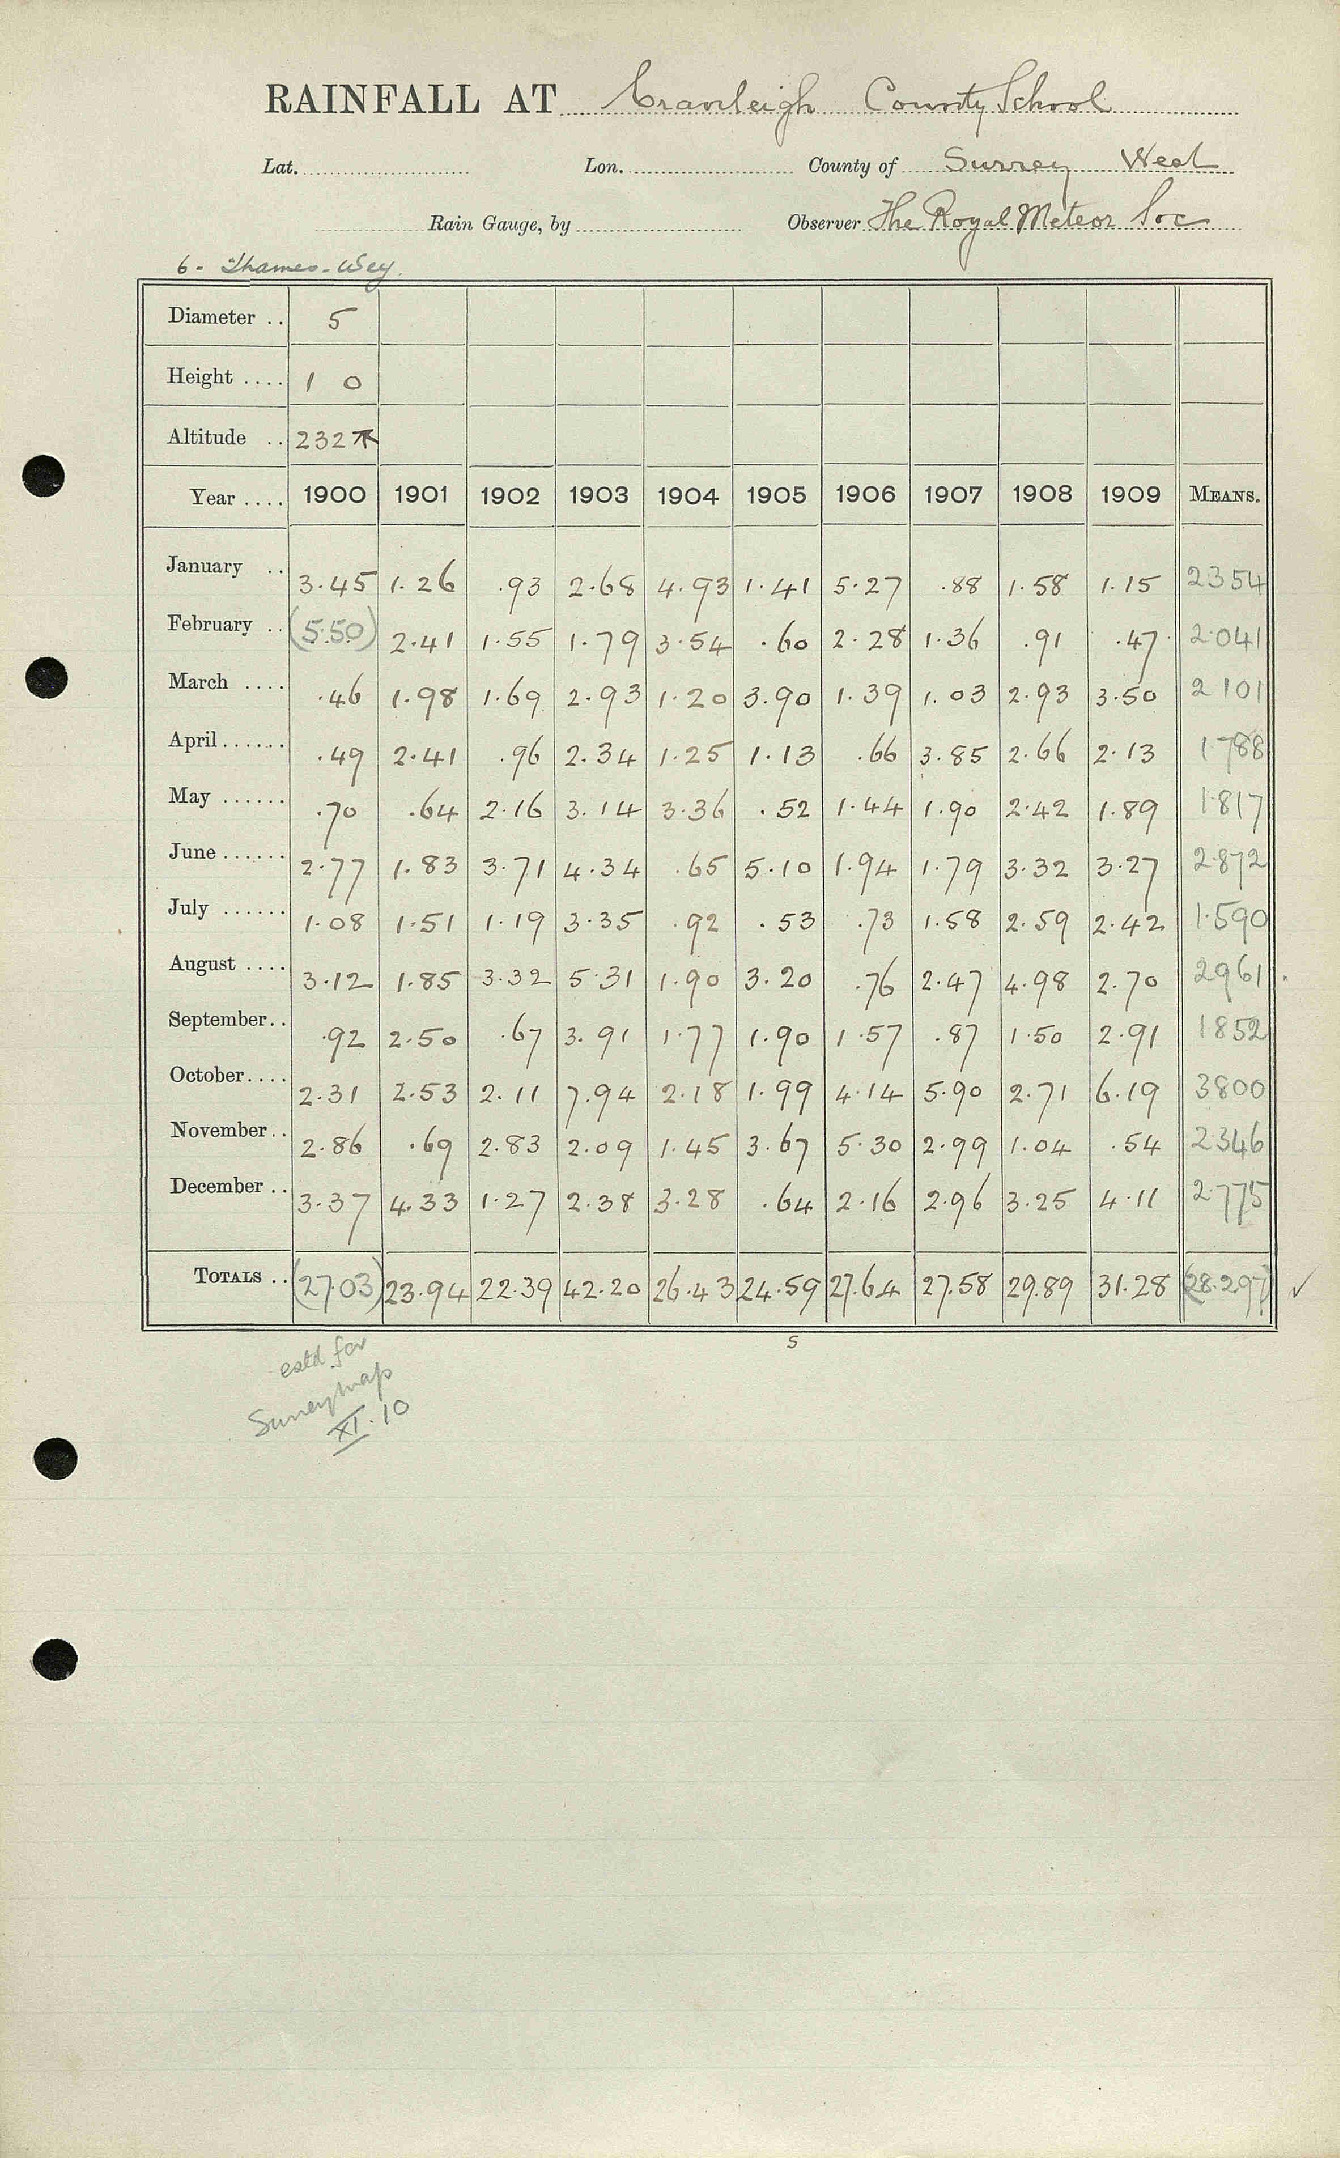 RAINFALL AT Cranleigh County School
Lat. Lon. County of Surrey West
Rain Gauge, by Observer The Royal Meteor Soc
6 - Thames - Wey.
Diameter .. 5
Height .... 1 0
Altitude .. 232
Year .... 1900 1901 1902 1903 1904 1905 1906 1907 1908 1909 MEANS.
January .. 3.45 1.26 .93 2.68 4.93 1.41 5.27 .88 1.58 1.15 2354
February .. (5.50) 2.41 1.55 1.79 3.54 .60 2.28 1.36 .91 .47 2.041
March .... .46 1.98 1.69 2.93 1.20 3.90 1.39 1.03 2.93 3.50 2 101
April...... .49 2.41 .96 2.34 1.25 1.13 .66 3.85 2.66 2.13 1.788
May ...... .70 .64 2.16 3.14 3.36 .52 1.44 1.90 2.42 1.89 1.817
June ...... 2.77 1.83 3.71 4.34 .65 5.10 1.94 1.79 3.32 3.27 2.872
July ...... 1.08 1.51 1.19 3.35 .92 .53 .73 1.58 2.59 2.42 1.590
August .... 3.12 1.85 3.32 5.31 1.90 3.20 .76 2.47 4.98 2.70 2961
September.. .92 2.50 .67 3.91 1.77 1.90 1.57 .87 1.50 2.91 1852
October.... 2.31 2.53 2.11 7.94 2.18 1.99 4.14 5.90 2.71 6.19 3800
November.. 2.86 .69 2.83 2.09 1.45 3.67 5.30 2.99 1.04 .54 2346
December .. 3.37 4.33 1.27 2.38 3.28 .64 2.16 2.96 3.25 4.11 2.775
TOTALS .. (27.03) 23.94 22.39 42.20 26.43 24.59 27.64 27.58 29.89 31.28 (28.297) ✓
s
estd for
Surrey map
XI.10